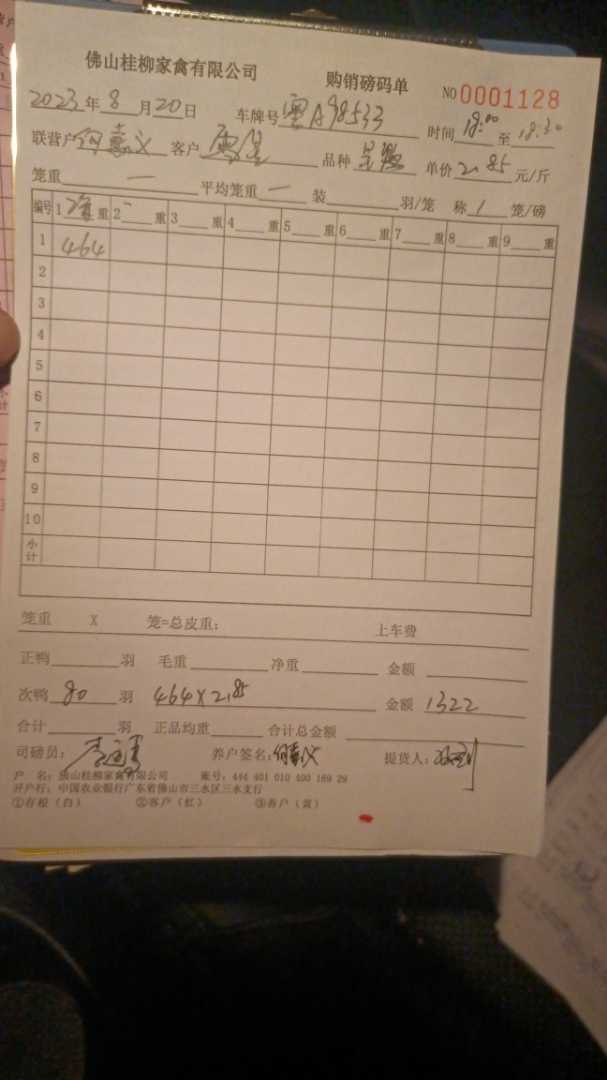 佛山桂柳家禽有限公司 购销磅码单 NO 0001128
2023年 8月 20日 车牌号 粤A98533 时间 18:00 至 18:30
联营户 何嘉义 客户 品种 单价 2.85 元/斤
笼重 一 平均笼重 一 装 羽/笼 称 1 笼/磅
编号 1 净重 2 重 3 重 4 重 5 重 6 重 7 重 8 重 9 重
1 464
2
3
4
5
6
7
8
9
10
小计
笼重 X 笼=总皮重: 上车费
正鸭 羽 毛重 净重 金额
次鸭 80 羽 464×2.85 金额 1322
合计 羽 正品均重 合计总金额
司磅员: 养户签名: 何嘉义 提货人:
户 名: 佛山桂柳家禽有限公司 账号: 444 401 010 400 169 29
开户行: 中国农业银行广东省佛山市三水区三水支行
①存根(白) ②客户(红) ③养户(黄)